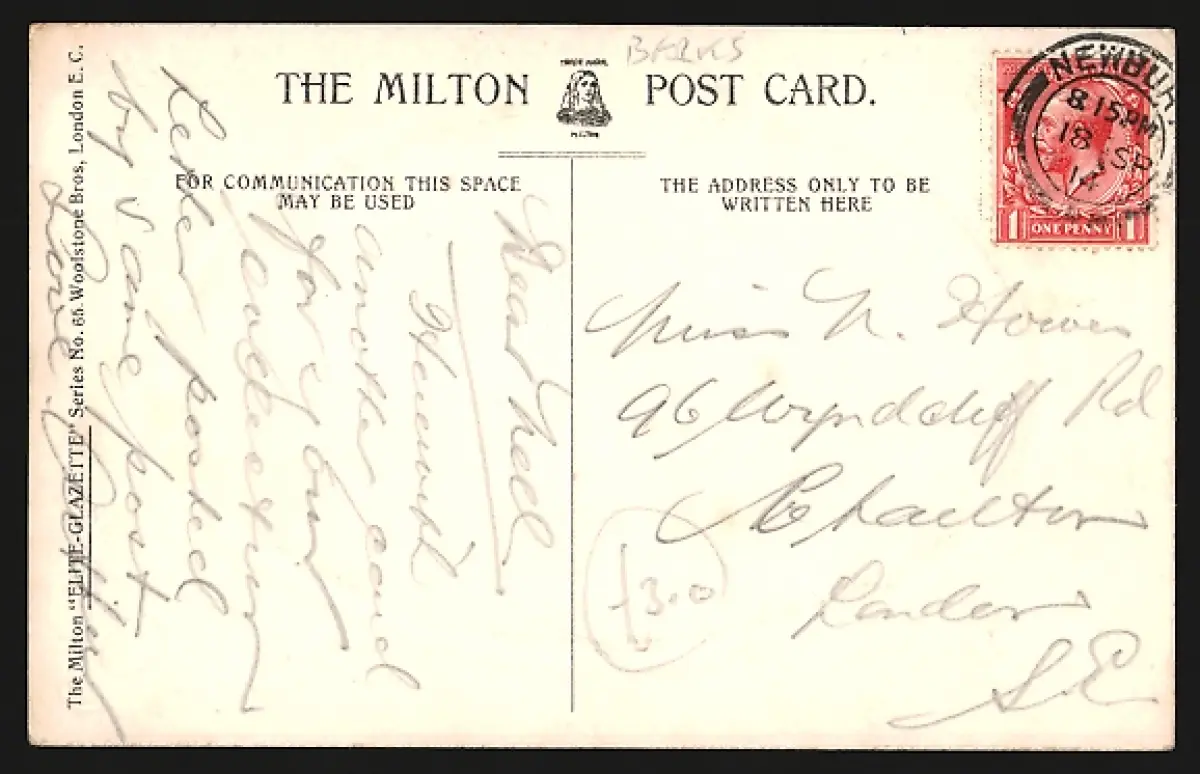 BERKS
THE MILTON POST CARD.
TRADE MARK
MILTON
FOR COMMUNICATION THIS SPACE
MAY BE USED
THE ADDRESS ONLY TO BE
WRITTEN HERE
NEWBURY
8.15PM
18 SP
14
1 ONE PENNY 1
Dear Nell
Herewith
another card
for your
collection
Letter posted
by same post
Love
Miss N. Howes
96 Wyndcliff Rd
Charlton
London
S.E
£3.0
The Milton "ELITE-GLAZETTE" Series No. 65 Woolstone Bros, London E.C.